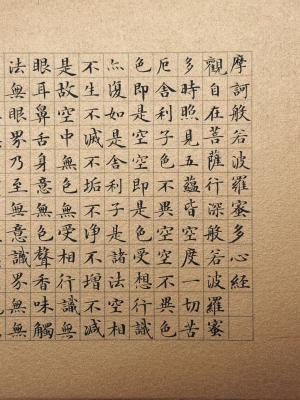 摩訶般若波羅蜜多心經
觀自在菩薩行深般若波羅蜜
多時照見五蘊皆空度一切苦
厄舍利子色不異空空不異色
色即是空空即是色受想行識
亦復如是舍利子是諸法空相
不生不滅不垢不淨不增不減
是故空中無色無受想行識無
眼耳鼻舌身意無色聲香味觸
法無眼界乃至無意識界無無